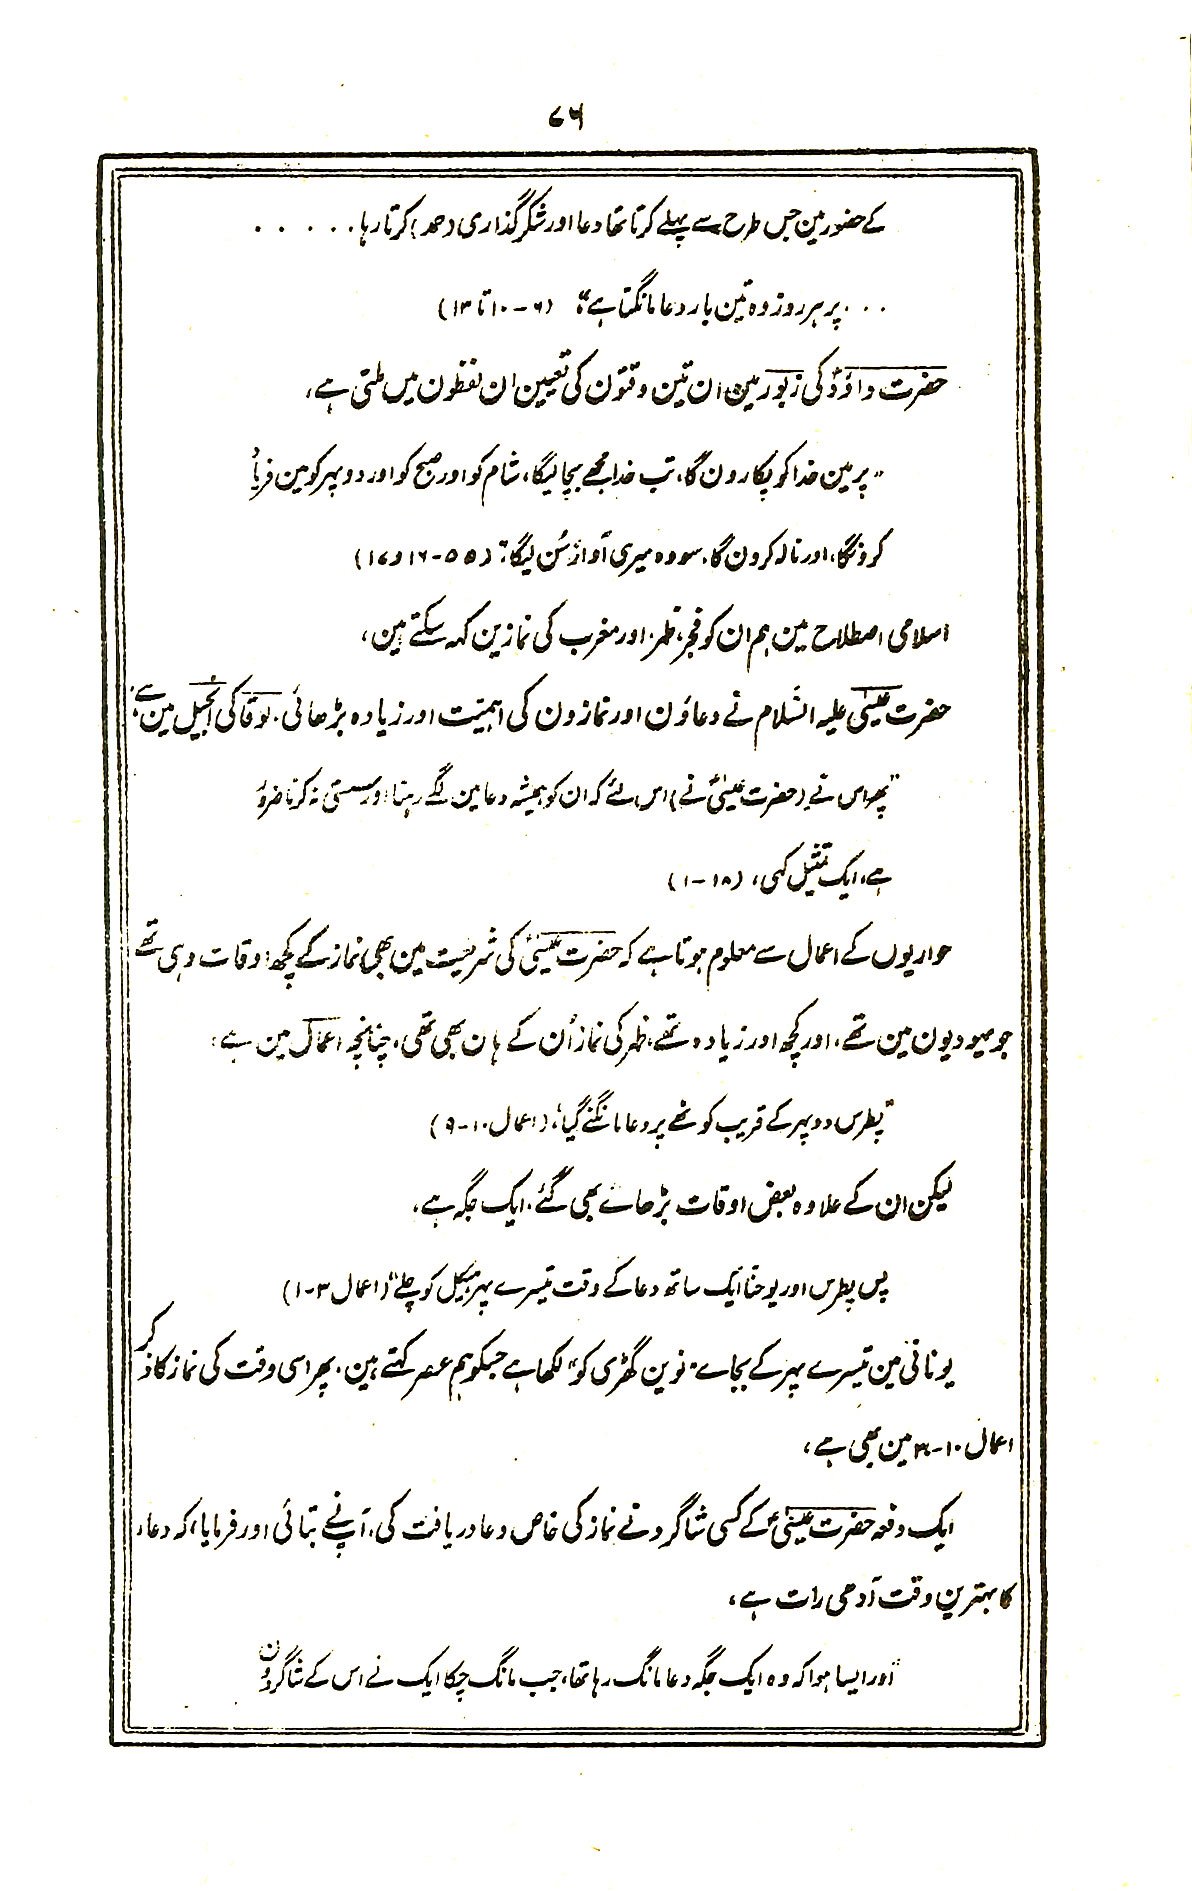 ۷۶
کے حضور مین جس طرح سے پہلے کرتا تھا دعا اور شکر گذاری (حمد) کرتا رہا . . . . . .
. . . پر ہر روز وہ تین بار دعا مانگتا ہے“ (۶-۱۰ تا ۱۳)
حضرت داؤدؑ کی زبور مین ان تین وقتون کی تعیین ان لفظون میں ملتی ہے،
”پر مین خدا کو پکارون گا، تب خدا مجھے بچا لیگا، شام کو اور صبح کو اور دوپہر کو مین فریاد
کرونگا، اور نالہ کرون گا، سو وہ میری آواز سُن لیگا“ (۵۵-۱۶ و ۱۷)
اسلامی اصطلاح مین ہم ان کو فجر، ظہر، اور مغرب کی نمازین کہہ سکتے ہین،
حضرت عیسیٰ علیہ السّلام نے دعاؤن اور نمازون کی اہمیّت اور زیادہ بڑھائی، لوقا کی انجیل مین ہے:
”پھر اس نے (حضرت عیسیٰؑ نے) اس لئے کہ ان کو ہمیشہ دعا مین لگے رہنا اور سستی نہ کرنا ضرور
ہے، ایک تمثیل کہی، (۱۸-۱)
حواریوں کے اعمال سے معلوم ہوتا ہے کہ حضرت عیسیٰؑ کی شریعت مین بھی نماز کے کچھ اوقات وہی تھے
جو یہودیون مین تھے، اور کچھ اور زیادہ تھے، ظہر کی نماز اُن کے ہان بھی تھی، چنانچہ اعمال مین ہے:
”پطرس دوپہر کے قریب کوٹھے پر دعا مانگنے گیا“، (اعمال ۱۰-۹)
لیکن ان کے علاوہ بعض اوقات بڑھائے بھی گئے، ایک جگہ ہے،
پس پطرس اور یوحنّا ایک ساتھ دعا کے وقت تیسرے پہر ہیکل کو چلے“ (اعمال ۳-۱)
یونانی مین تیسرے پہر کے بجاے ”نوین گھڑی کو“ لکھا ہے جسکو ہم عصر کہتے ہین، پھر اسی وقت کی نماز کا ذکر
اعمال ۱۰-۳ مین بھی ہے،
ایک دفعہ حضرت عیسیٰؑ کے کسی شاگرد نے نماز کی خاص دعا دریافت کی، آپنے بتائی اور فرمایا، کہ دعاء
کا بہترین وقت آدھی رات ہے،
”اور ایسا ہوا کہ وہ ایک جگہ دعا مانگ رہا تھا، جب مانگ چکا ایک نے اس کے شاگردون